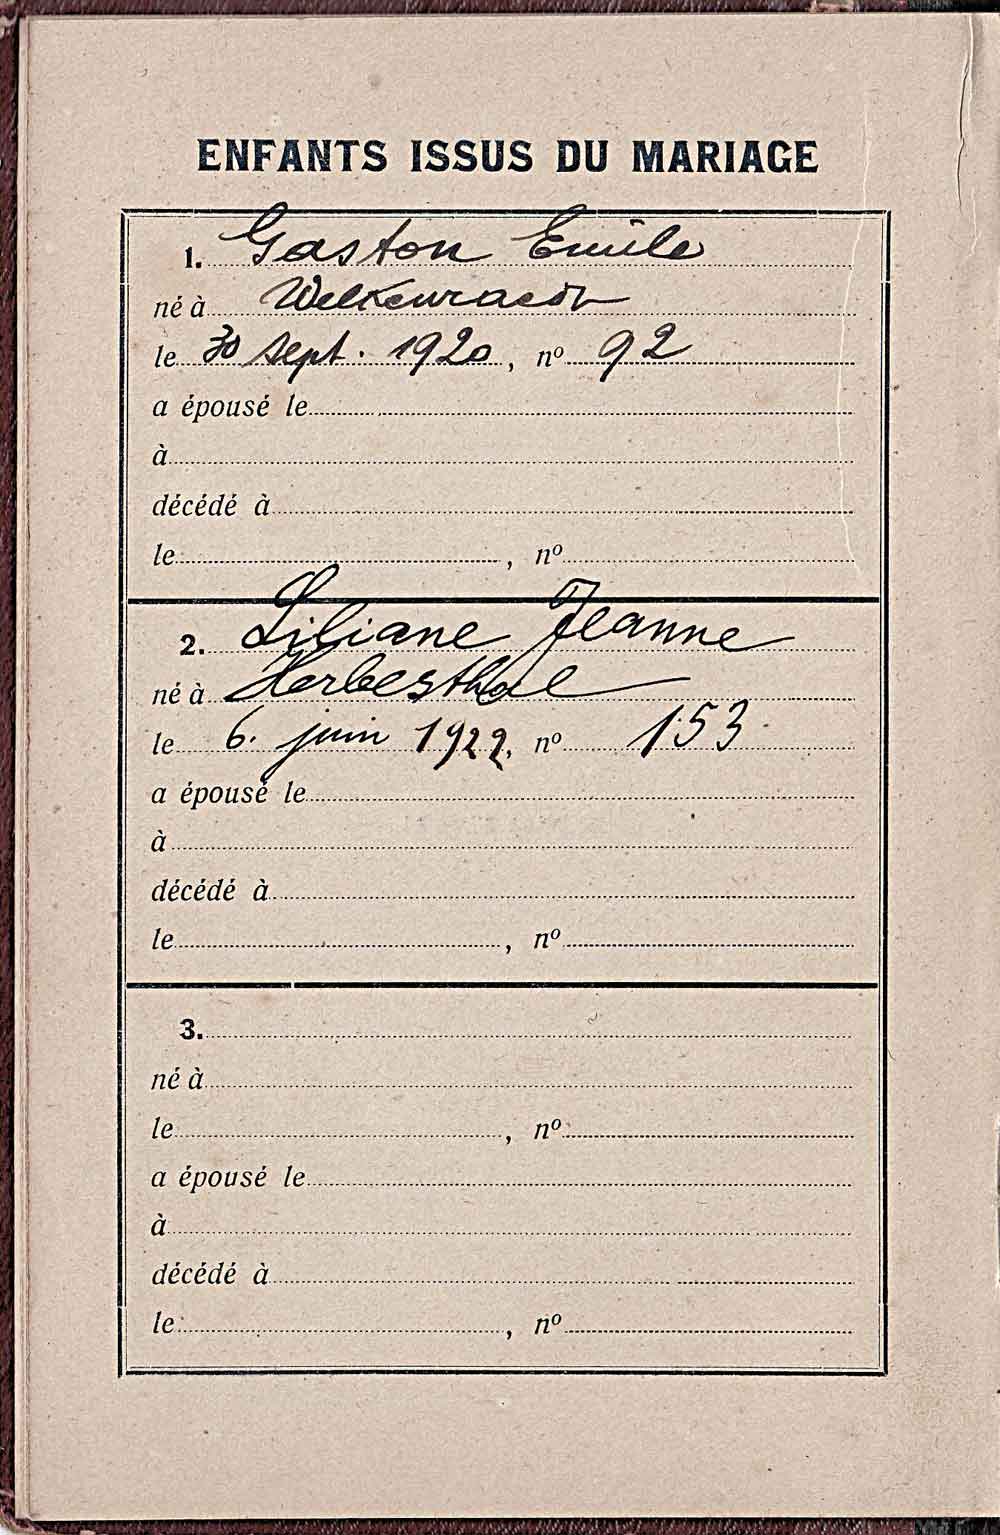 ENFANTS ISSUS DU MARIAGE
1. Gaston Emile
né à Welkenraedt
le 30 sept. 1920, nº 92
a épousé le
à
décédé à
le , nº
2. Liliane Jeanne
né à Herbesthal
le 6. juin 1922, nº 153
a épousé le
à
décédé à
le , nº
3.
né à
le , nº
a épousé le
à
décédé à
le , nº